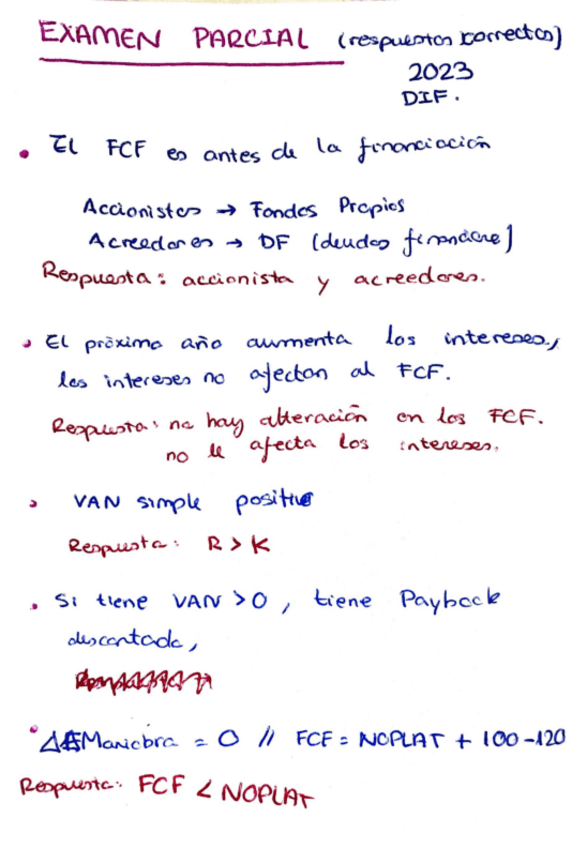 EXAMEN PARCIAL (respuestas correctas)
2023
DIF.
• El FCF es antes de la financiación
Accionistas → Fondos Propios
Acreedores → DF (deudas financiera)
Respuesta: accionista y acreedores.
• El próximo año aumenta los intereses,
los intereses no afectan al FCF.
Respuesta: no hay alteración en los FCF.
no le afecta los intereses.
• VAN simple positivo
Respuesta: R > K
• Si tiene VAN > 0, tiene Payback
descontado,
• Maniobra = 0 // FCF = NOPLAT + 100 - 120
Respuesta: FCF < NOPLAT